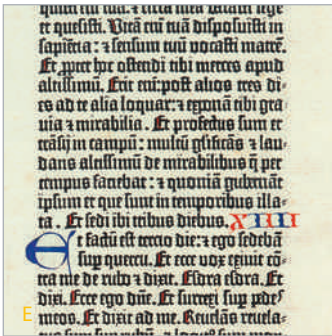 te quesisti. Vitā eni tuā disposuisti in
sapiētia: ⁊ sensum tuū vocasti matrē.
Et ꝓpter hoc ostendi tibi merces apud
altissimū. Erit eni: post alios tres di-
es ad te alia loquar: ⁊ exponā tibi gra-
uia ⁊ mirabilia. Et profectus sum et
trāsij in campū: multū glificās ⁊ lau-
dans altissimū de mirabilibus q̄ per
tempus faciebat: ⁊ quoniā gubernat
ipsum et que sunt in temporibus illa-
ta. Et sedi ibi tribus diebus. XIIII
Et factū est tercio die: ⁊ ego sedebā
sup quercu. Et ecce vox exiuit cō-
tra me de rubo ⁊ dixit. Esdra esdra. Et
dixi. Ecce ego dn̄e. Et surrexi sup pedes
meos. Et dixit ad me. Reuelās reuela-
E